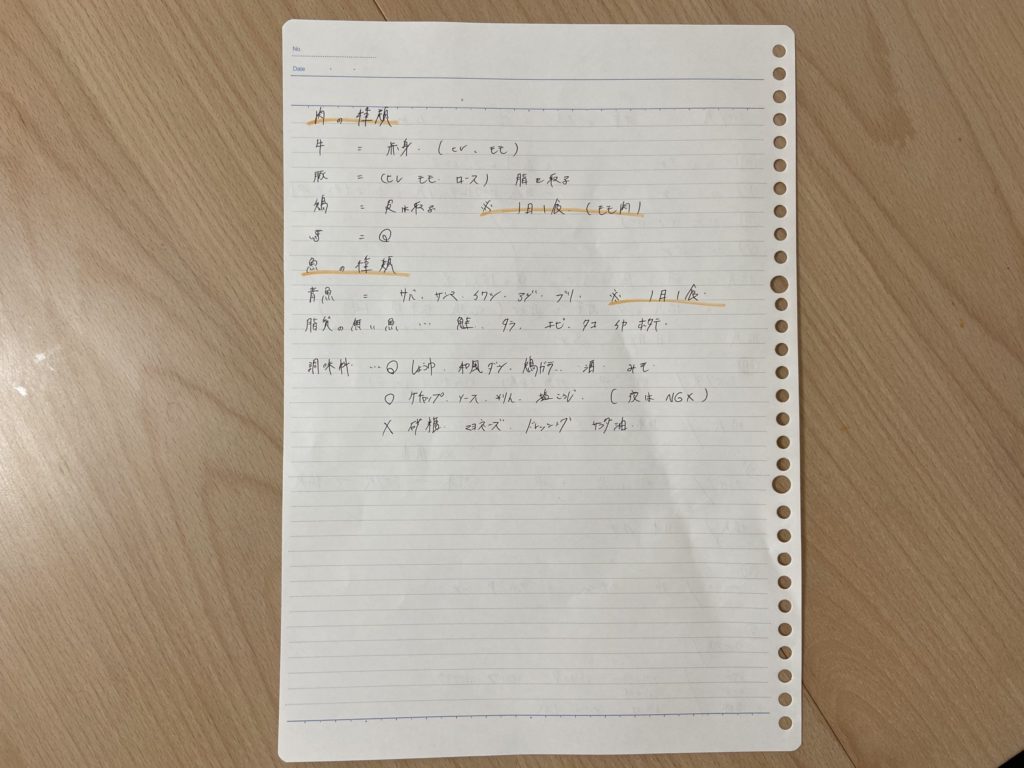 No.
Date ・ ・
肉の種類
牛 = 赤身. (ヒレ、モモ)
豚 = (ヒレ モモ. ロース) 脂を取る
鶏 = 皮は取る ※ 1日1食 (モモ肉)
= ◎
魚の種類
青魚 = サバ、サンマ、イワシ、アジ、ブリ. ※ 1日1食.
脂質の無い魚 … 鮭、タラ、エビ、タコ イカ ホタテ.
調味料 … ◎ しょうゆ、和風ダシ、鶏ガラ、酒. みそ.
○ ケチャップ、ソース、みりん、塩こうじ (夜は NG×)
× 砂糖. マヨネーズ、ドレッシング サラダ油.